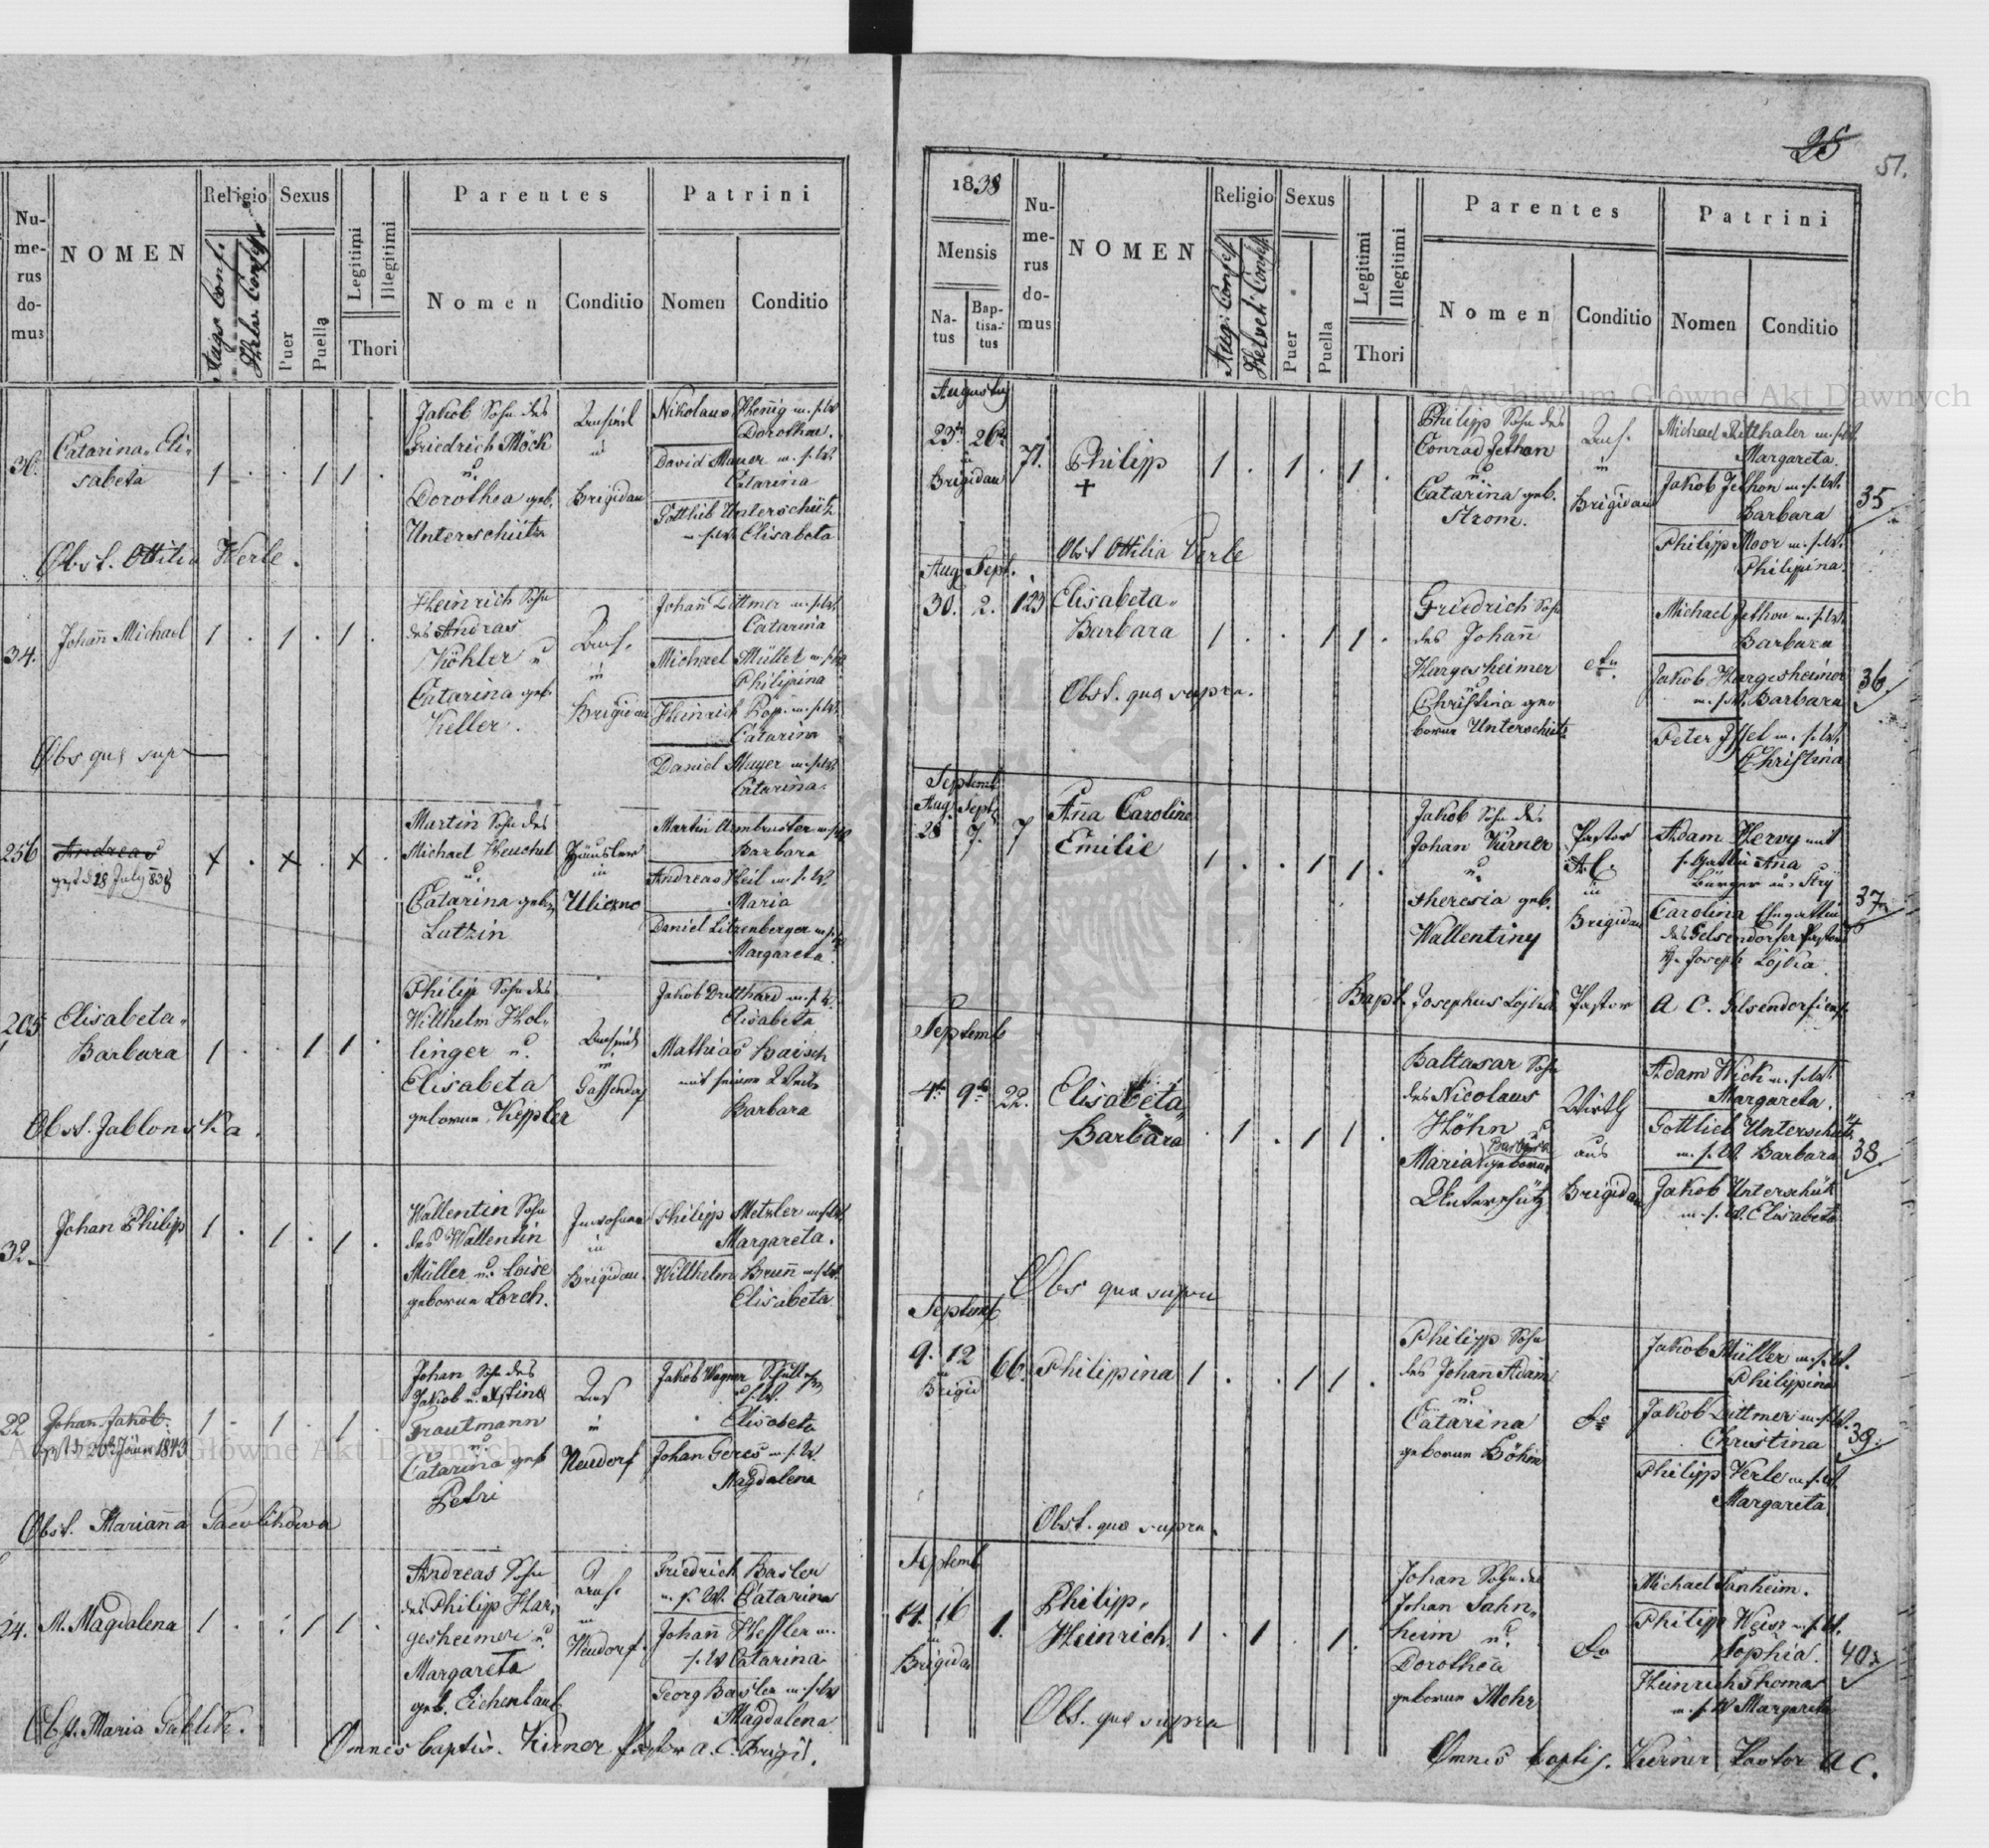 Nu-
me-
rus
do-
mus
NOMEN
Religio
Sexus
Puer
Puella
Legitimi
Illegitimi
Thori
Parentes
Nomen
Conditio
Patrini
Nomen
Conditio
30.
Catarina Eli-
sabeta
1 . . 1 1 .
Jakob Sohn des
Friedrich Möck
u.
Dorothea geb.
Unterschütz
in
Brigidau
Nikolaus Hennig m. s. W.
Dorothea.
David Maurer m. s. W.
Catarina
Gottlieb Unterschütz
m. s. W. Elisabeta
Obst. Ottilia Werle.
34.
Johañ Michael
1 . 1 . 1 .
Heinrich Sohn
des Andras
Köhler u.
Catarina geb.
Keller.
in
Brigidau
Johañ Dittmer m. s. W.
Catarina
Michael Müller m. s. W.
Philipina
Heinrich Pop. m. s. W.
Catarina
Daniel Mayer m. s. W.
Catarina.
Obs qua supr
256
Andreas
gest d 28 July 838
x . x . x .
Martin Sohn des
Michael Heuchel
u.
Catarina geb.
Lutzin
Häusler
in
Uliczno
Martin Armbruster m. s. W.
Barbara
Andreas Heil m. s. W.
Maria
Daniel Litzenberger m. s. W.
Margareta.
205
Elisabeta
Barbara
1 . . 1 1 .
Philip Sohn des
Willhelm Hol-
linger u.
Elisabeta
geborne Keppler
in
Gassendorf
Jakob Drutthard m. s. W.
Elisabeta
Mathias Baisch
mit seinem Weibe
Barbara
Obst. Jablonska.
32.
Johan Philipp
1 . 1 . 1 .
Wallentin Sohn
des Wallentin
Müller u. Loise
geborne Lorch.
Inwohner
in
Brigidau.
Philipp Metzler m. s. W.
Margareta.
Willhelm Brunn m. s. W.
Elisabeta
22
Johan Jakob.
gest d 20 Jäner 1843
1 . 1 . 1 .
Johan Sohn des
Jakob u.
Trautmann
u.
Catarina geb
Petri
in
Neudorf
Jakob Wagner
Elisabeta
Johan Geres m. s. W.
Magdalena
Obst. Mariaña Pawlikowa
24.
M. Magdalena
1 . . 1 1 .
Andreas Sohn
des Philipp Har-
gesheimer u.
Margareta
geb. Eichenlaub
in
Neudorf.
Friedrich Basler
m. s. W. Catarina
Johañ Heffler m.
s. W. Catarina
Georg Basler m. s. W.
Magdalena
Obst. Maria Gablik.
Omnes baptis. Kirner Pastor A. C. Brigid.
28
51.
1838
Mensis
Na-
tus
Bap-
tisa-
tus
Nu-
me-
rus
do-
mus
NOMEN
Religio
Aug. Confess
Helveti Confess
Sexus
Puer
Puella
Legitimi
Illegitimi
Thori
Parentes
Nomen
Conditio
Patrini
Nomen
Conditio
Archiwum Główne Akt Dawnych
23t 26t
in
Brigidau
71.
Philipp
+
1 . 1 . 1 .
Philipp Sohn des
Conrad Jethon
u.
Catarina geb.
Strom.
in
Brigidau
Michael Ritthaler m. s. W.
Margareta.
Jakob Jethon m. s. W.
Barbara
Philipp Moor m. s. W.
Philippina.
35
Obst Ottilia Verle
Aug. Sept.
30. 2.
123
Elisabeta
Barbara
1 . . 1 1 .
Friedrich Sohn
des Johañ
Hargesheimer
u.
Christina ge-
borne Unterschütz
Michael Jethon m. s. W.
Barbara
Jakob Hargesheimer
m. s. W. Barbara
Peter Issel m. s. W.
Christina
36.
Obst. qua supra.
Septemb
Aug. Sept.
28 7.
7
Aña Carolina
Emilie
1 . . 1 1 .
Jakob Sohn des
Johan Kirner
u.
Theresia geb.
Wallentiny
Pastor
A. C.
in
Brigidau
Adam Hervy mit
s. Gattin Aña
Bürger aus Stry
Carolina Ehegattin
des Gelsendorfer Pastors
H. Joseph Lojka.
37.
Bapt. Josephus Lojka Pastor A C. Gelsendorfiens
Septemb
4t 9t
22.
Elisabeta
Barbara
. 1 . 1 1 .
Baltasar Sohn
des Nicolaus
Höhn u
Maria Barbara geborne
Unterschütz
Wirth
aus
Brigidau
Adam Wick m. s. W.
Margareta.
Gottlieb Unterschütz
m. s. W. Barbara
Jakob Unterschütz
m. s. W. Elisabeta
38.
Obs qua supra
Septemb
9. 12
in
Brigid
66.
Philippina
1 . . 1 1 .
Philipp Sohn
des Johañ Adam
u.
Catarina
geborne Böhm
do
Jakob Müller m. s. W.
Philippina
Jakob Dittmer m. s. W.
Christina
Philipp Verle m. s. W.
Margareta
39.
Obst. qua supra.
Septemb
14. 16
in
Brigidau
1.
Philipp,
Heinrich
1 . 1 . 1 .
Johan Sohn des
Johan Sahn-
heim u.
Dorothea
geborne Mohr
do
Michael Sanheim.
Philipp Weiss m. s. W.
Sophia.
Heinrich Thomas
m. s. W Margareta
40.
Obs. qua supra
Omnes baptis. Kirner Pastor A C.
Archiwum Główne Akt Dawnych